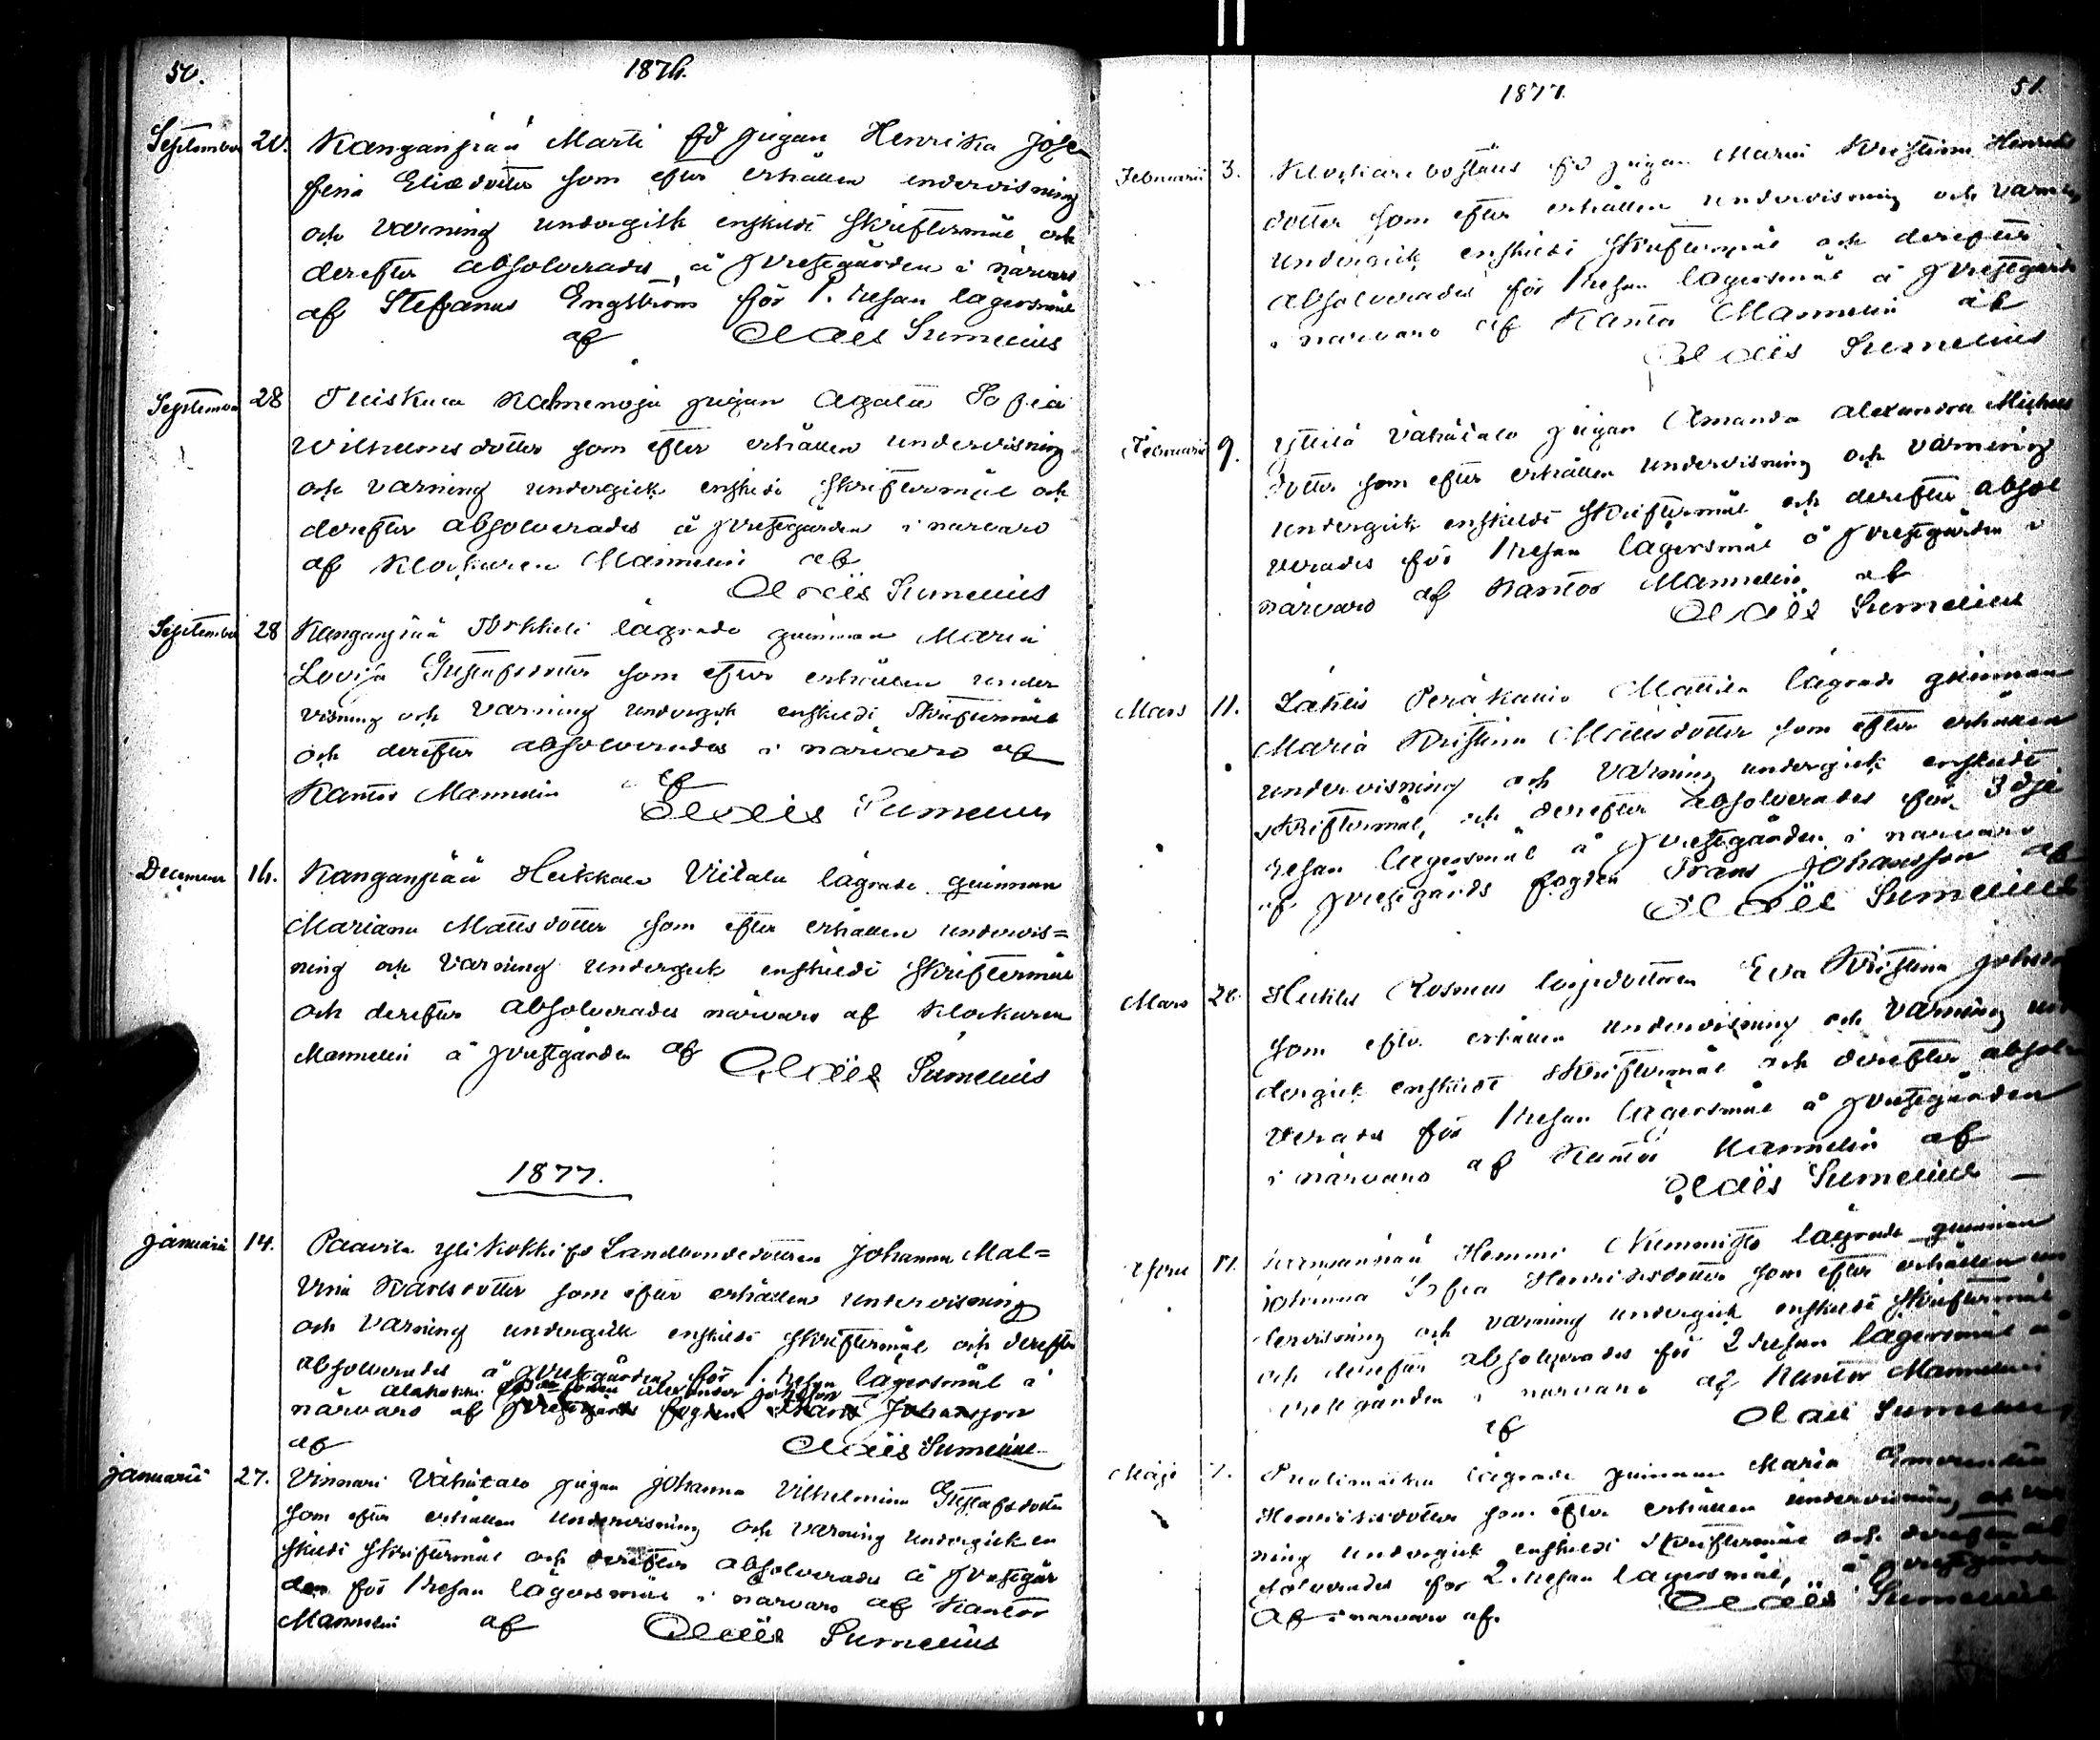 50. 1876.
September 20. Kanganpää Martti fd pigan Henrika Jose
fina Eliædotter som efter erhållen undervisning
och varning undergick enskildt skriftermål och
derefter absolverades å prestgården i närvaro
af Stefanus Engström för 1. resan lägersmål
af Claës Sumelius
September 28 Tuiskula Kalmenoja pigan Agata Sofia
Wilhelmsdotter som efter erhållen undervisning
och varning undergick enskildt skriftermål och
derefter absolverades å prestgården i närvaro
af Klockaren Mannelin af
Claës Sumelius
September 28 Kanganpää lägrade qvinnan Maria
Lovisa Gustafsdotter som efter erhållen under
visning och varning undergick enskildt skriftermål
och derefter absolverades i närvaro af
Kantor Mannelin af
Claës Sumelius
December 16. Kanganpää Heikkala Viitala lägrade qvinnan
Mariana Mattsdotter som efter erhållen undervis=
ning och varning undergick enskildt skriftermål
och derefter absolverades närvaro af Klockaren
Mannelin å prestgården af Claës Sumelius
1877.
Januarii 14. Paavila Ylikokki fd Landbondedottren Johanna Mal=
vina Karlsdotter som efter erhållen undervisning
och varning undergick enskildt skriftermål och derefter
absolverades å prestgården för 1. resan lägersmål i
Alakokki Alexander Johansson
närvaro af prestgårds fogden Frans Johansson
af Claës Sumelius
Januarii 27. Vinnari Vähätalo pigan Johanna Vilhelmina Gustafsdotter
som efter erhållen undervisning och varning undergick en
skildt skriftermål och derefter absolverades å prestgår
den för 1 resan lägersmål i närvaro af Kantor
Mannelin af Claës Sumelius
1877. 51.
Februarii 3. Klockarebostälis fd pigan Maria Kristina Henriks
dotter som efter erhållen undervisning och varning
undergick enskildt skriftermål och derefter
absolverades för 1 resan lägersmål å prestgården
i närvaro af Kantor Mannelin af
Claës Sumelius
Februarii 9. Yttilä Vähätalo pigan Amanda Alexandra Michels
dotter som efter erhållen undervisning och varning
undergick enskildt skriftermål och derefter absol
verades för 1 resan lägersmål å prestgården i
närvaro af Kantor Mannelin af
Claës Sumelius
Mars 11. Lähteis Peräkallio Mattila lägrade qvinnan
Maria Kristina Mattsdotter som efter erhållen
undervisning och varning undergick enskildt
skriftermål, och derefter absolverades för 3dje
resan lägersmål å prestgården i närvaro
af prestgårds fogden Frans Johansson af
Claës Sumelius
Mars 26. Eva Kristina
som efter erhållen undervisning och varning un
dergick enskildt skriftermål och derefter absol
verades för 1 resan lägersmål å prestgården
i närvaro af Kantor Mannelin af
Claës Sumelius
April 17. Kanganpää Hemmi Niemistö lägrade qvinnan
Johanna Sofia Henriksdotter som efter erhållen un
dervisning och varning undergick enskildt skriftermål
och derefter absolverades för 2 resan lägersmål å
prestgården i närvaro af Kantor Mannelin
af Claës Sumelius
Maji lägrade qvinnan Maria Emerentia
Henriksdotter som efter erhållen undervisning och var
ning undergick enskildt skriftermål och derefter ab
solverades för 2. resan lägersmål, å prestgården
af i närvaro af. Claës Sumelius